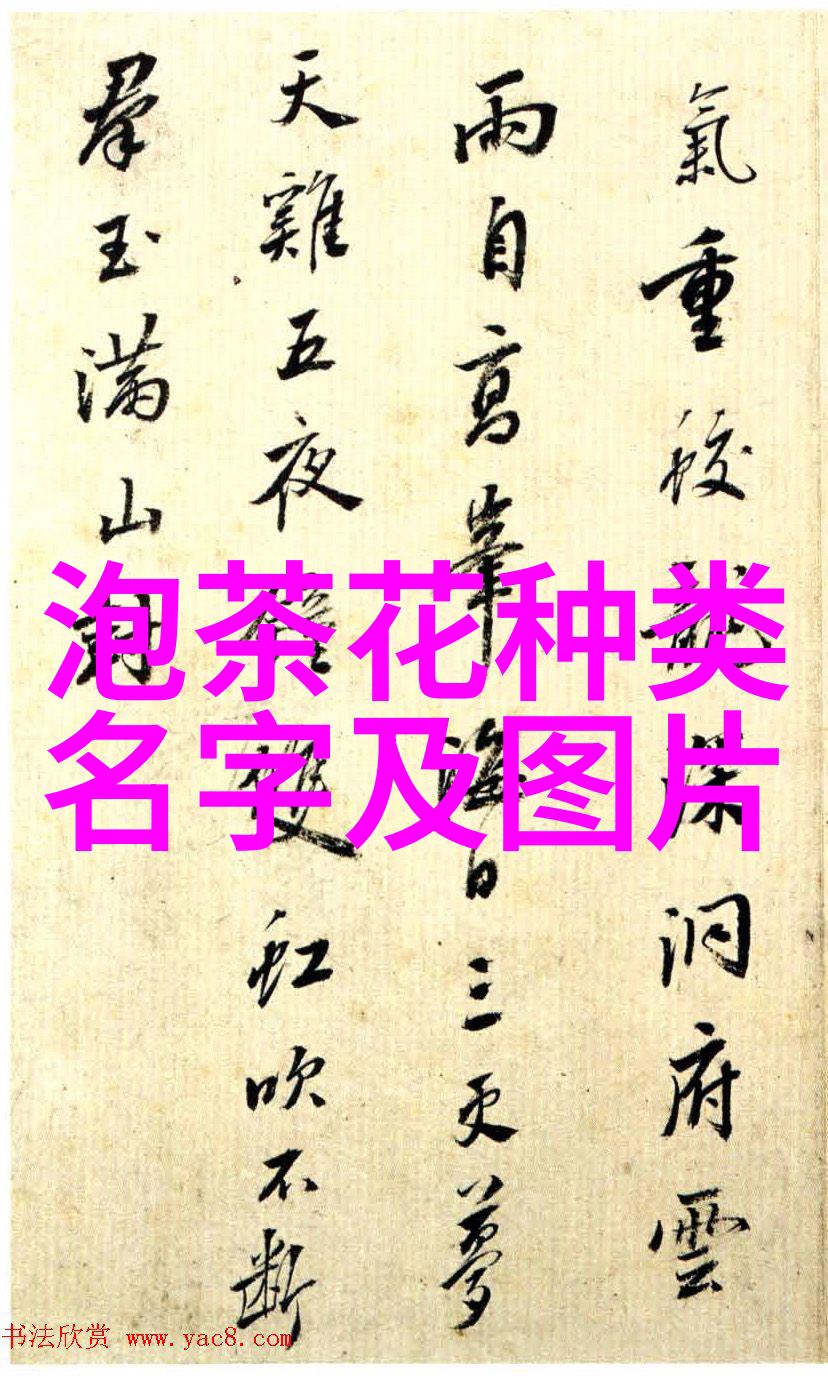 氣重蛟龍深洞府雲
雨自高峯海日三更夢
天雞五夜鐘雙虹吹不斷
羣玉滿山封
泡茶花种类
名字及图片
书法欣赏 www.yac8.com